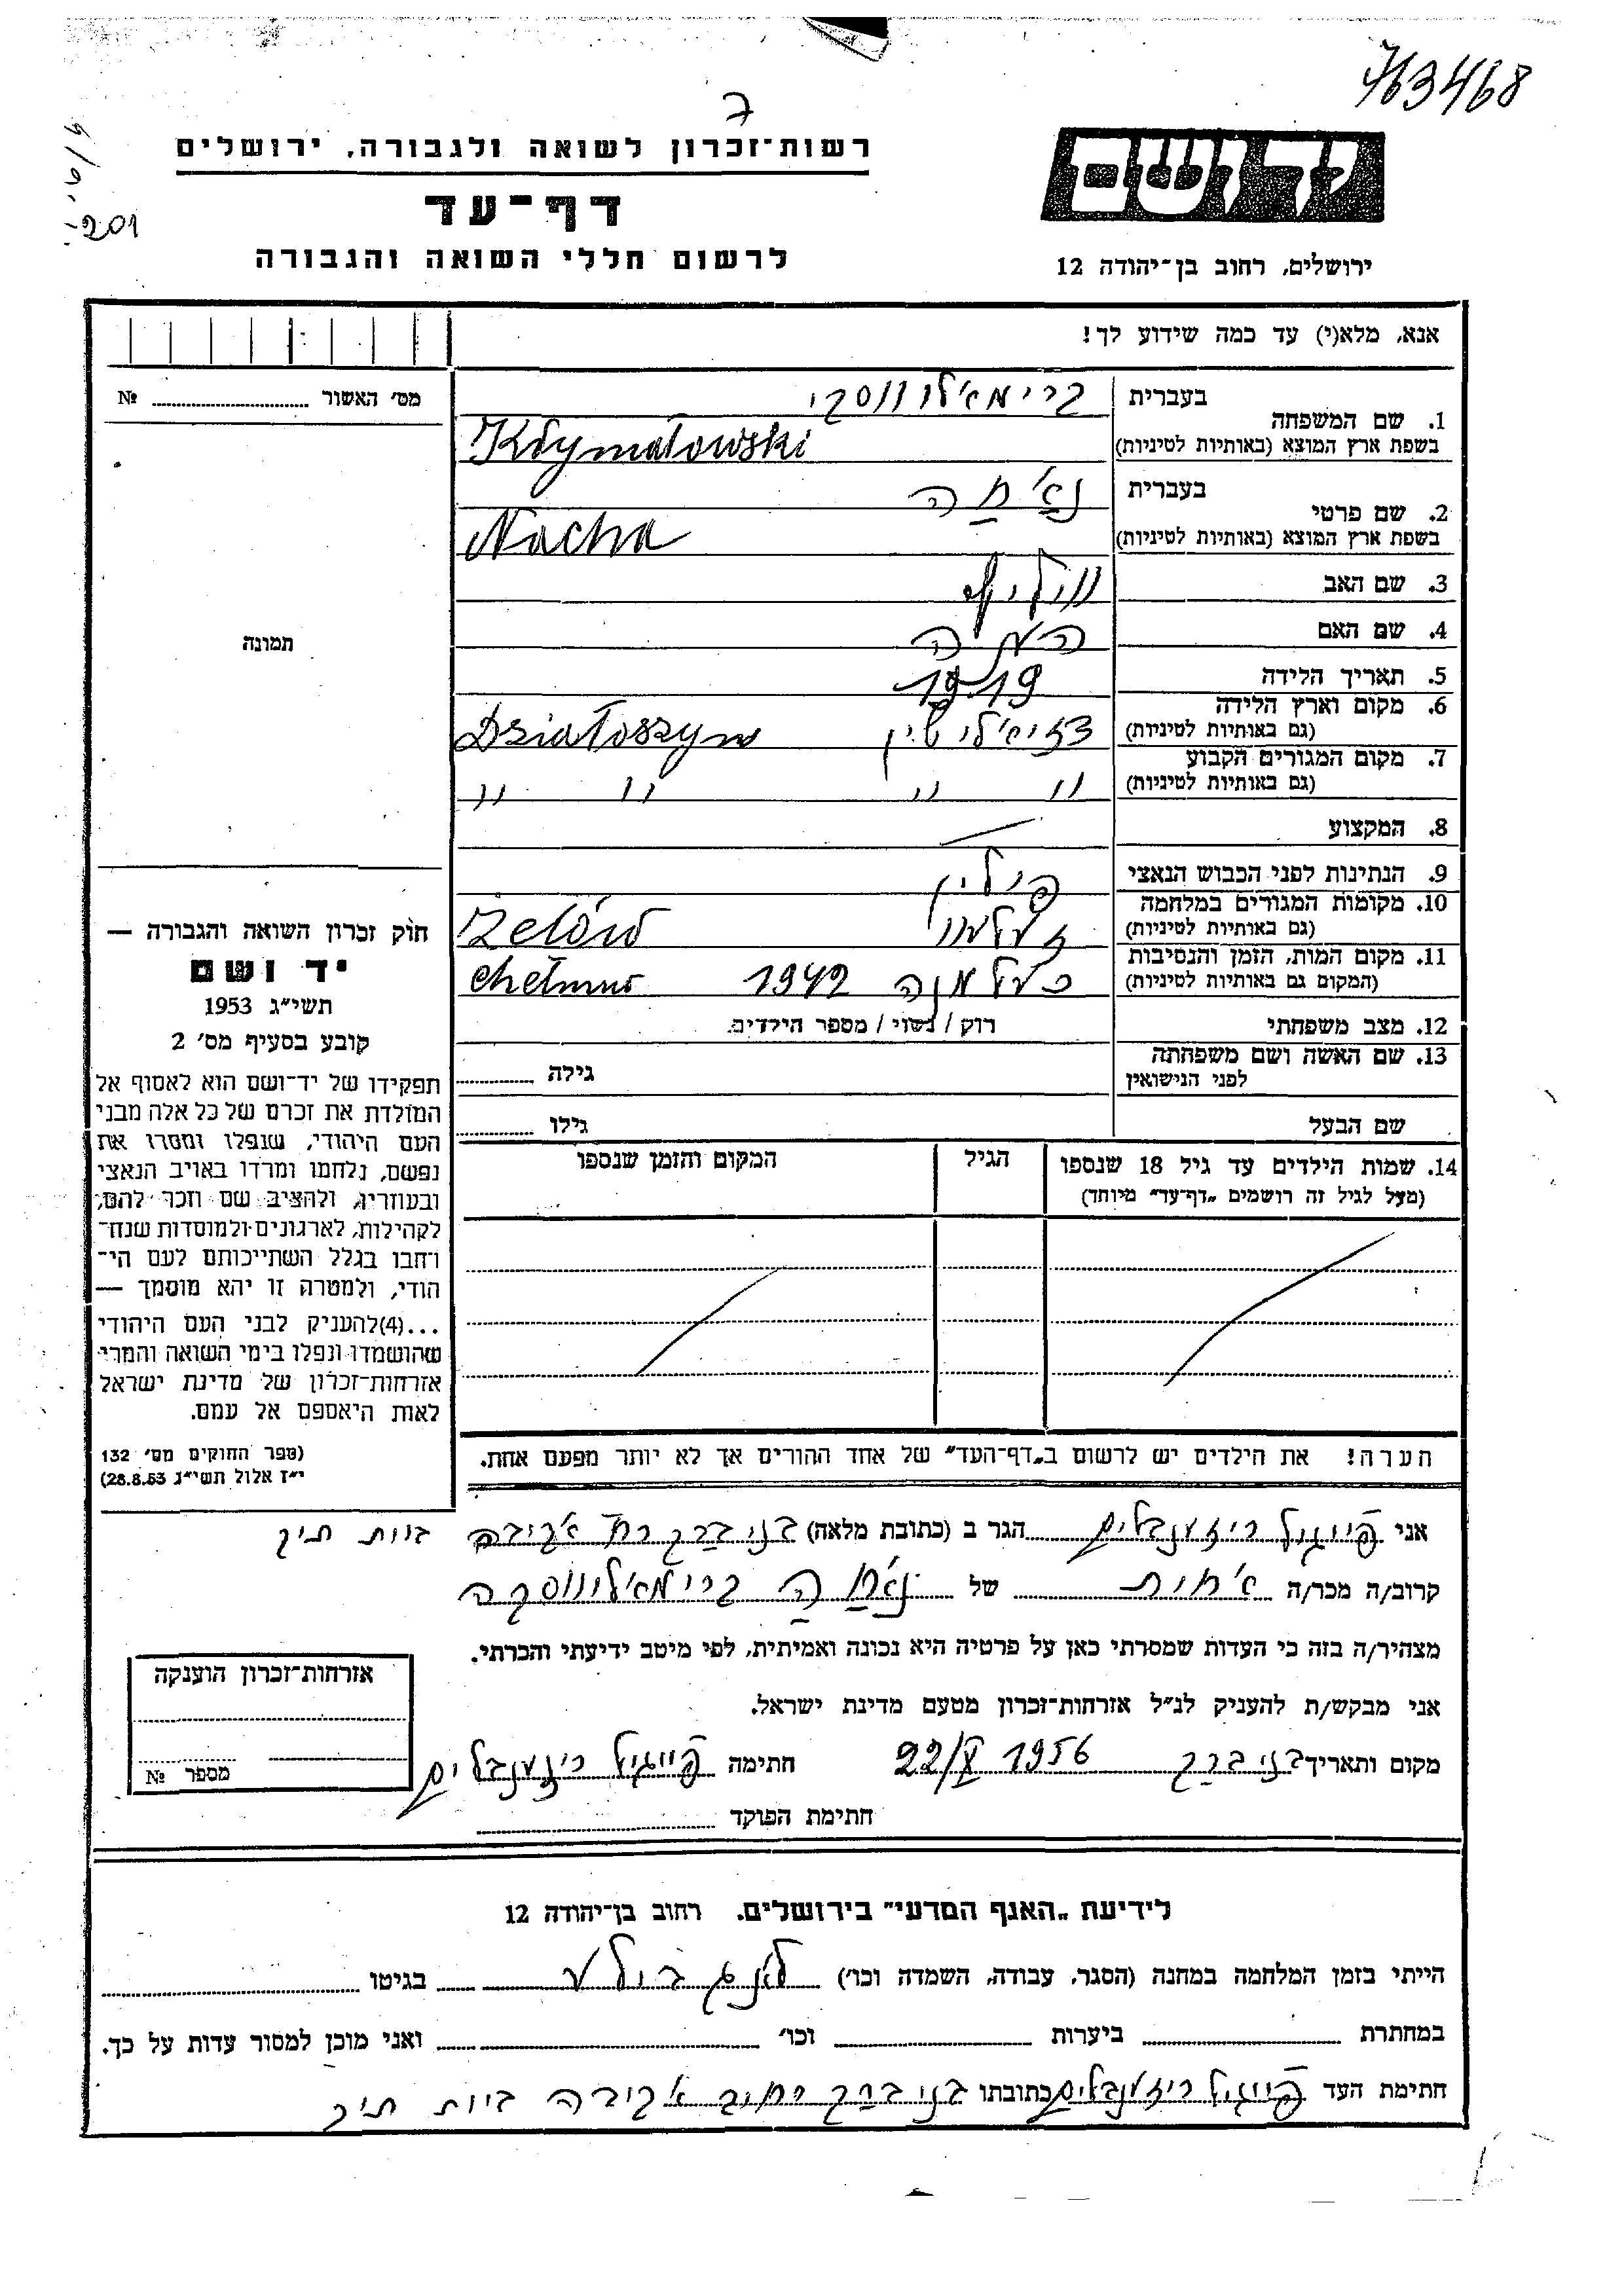 763468
7
רשות-זכרון לשואה ולגבורה, ירושלים
דף-עד
לרשום חללי השואה והגבורה
201
יד ושם
ירושלים, רחוב בן-יהודה 12
אנא, מלא(י) עד כמה שידוע לך!
מס׳ האשור № ........
תמונה
1. שם המשפחה בעברית
בשפת ארץ המוצא (באותיות לטיניות) Krymałowski
2. שם פרטי בעברית נאַחַה
בשפת ארץ המוצא (באותיות לטיניות) Nacha
3. שם האב
4. שם האם
5. תאריך הלידה 1919
6. מקום וארץ הלידה (גם באותיות לטיניות) Działoszyn
7. מקום המגורים הקבוע (גם באותיות לטיניות) " " " "
8. המקצוע
9. הנתינות לפני הכבוש הנאצי פולין
10. מקומות המגורים במלחמה (גם באותיות לטיניות) זעלאוו Zelów
11. מקום המות, הזמן והנסיבות (המקום גם באותיות לטיניות) כעלמנה 1942 Chełmno
12. מצב משפחתי רוק / נשוי / מספר הילדים.
13. שם האשה ושם משפחתה לפני הנישואין גילה ........
שם הבעל גילו ........
14. שמות הילדים עד גיל 18 שנספו (מעל לגיל זה רושמים „דף-עד" מיוחד)
הגיל
המקום והזמן שנספו
חוק זכרון השואה והגבורה —
יד ושם
תשי״ג 1953
קובע בסעיף מס׳ 2
תפקידו של יד-ושם הוא לאסוף אל
המולדת את זכרם של כל אלה מבני
העם היהודי, שנפלו ומסרו את
נפשם, נלחמו ומרדו באויב הנאצי
ובעוזריו, ולהציב שם וזכר להם,
לקהילות, לארגונים ולמוסדות שנח-
רחבו בגלל השתייכותם לעם הי-
הודי, ולמטרה זו יהא מוסמך —
...(4)להעניק לבני העם היהודי
שהושמדו ונפלו בימי השואה והמרי
אזרחות-זכרון של מדינת ישראל
לאות היאספם אל עמם.
(ספר החוקים מס׳ 132
י״ז אלול תשי״ג 28.8.53)
הערה! את הילדים יש לרשום ב„דף-העד" של אחד ההורים אך לא יותר מפעם אחת.
אני פייגיל הגר ב (כתובת מלאה) בני ברק
קרוב/ה מכר/ה אחות של נאַחַה
מצהיר/ה בזה כי העדות שמסרתי כאן על פרטיה היא נכונה ואמיתית, לפי מיטב ידיעתי והכרתי.
אני מבקש/ת להעניק לנ״ל אזרחות-זכרון מטעם מדינת ישראל.
מקום ותאריך בני ברק 22/X 1956 חתימה פייגיל
חתימת הפוקד ........
אזרחות-זכרון הוענקה
מספר №
לידיעת „האגף המדעי" בירושלים. רחוב בן-יהודה 12
הייתי בזמן המלחמה במחנה (הסגר, עבודה, השמדה וכו׳) בגיטו ........
במחתרת ........ ביערות ........ וכו׳ ........ ואני מוכן למסור עדות על כך.
חתימת העד פייגיל כתובתו בני ברק רחוב